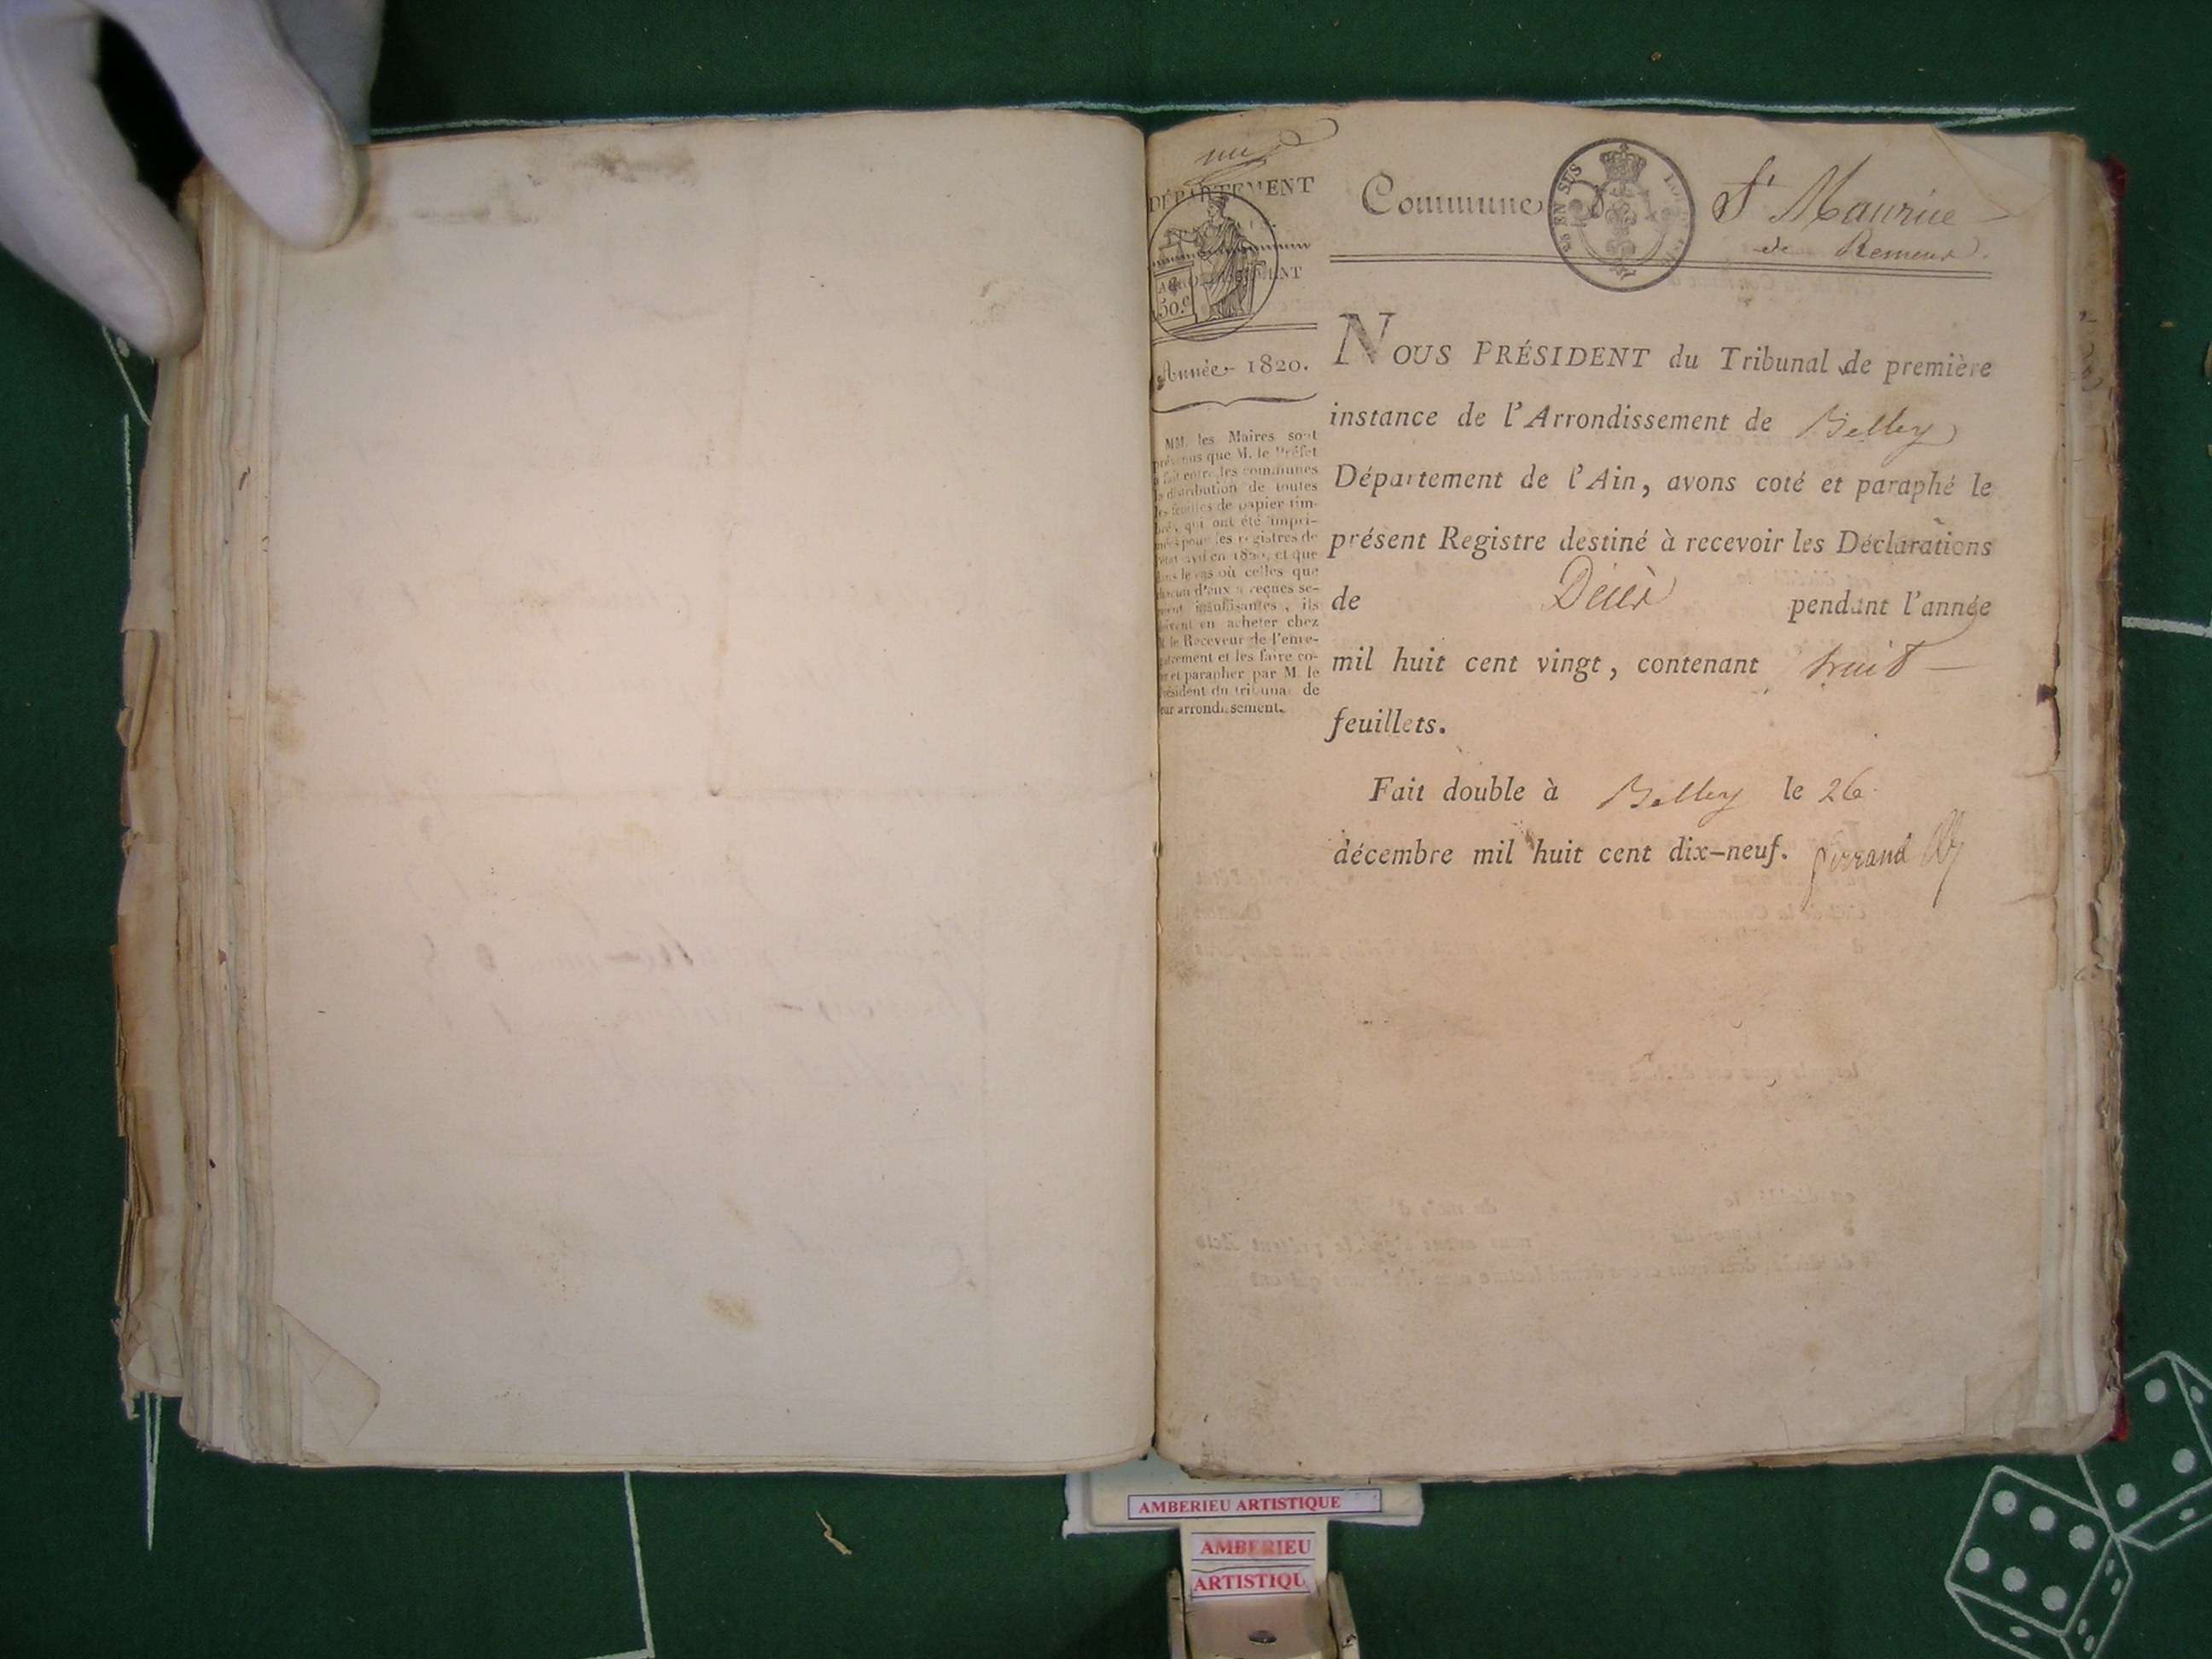 DÉPARTEMENT
50.c
Année 1820.
MM. les Maires sont
prévenus que M. le Préfet
a fait entre les communes
la distribution de toutes
les feuilles de papier tim-
bré, qui ont été impri-
mées pour les registres de
l'état civil en 1820, et que
dans le cas où celles que
chacun d'eux a reçues se-
roient insuffisantes, ils
doivent en acheter chez
M. le Receveur de l'enre-
gistrement et les faire co-
ter et parapher par M. le
Président du tribunal de
leur arrondissement.
Commune de St Maurice
de Remens
EN SUS
NOUS PRÉSIDENT du Tribunal de première
instance de l'Arrondissement de Belley
Département de l'Ain, avons coté et paraphé le
présent Registre destiné à recevoir les Déclarations
de Décès pendant l'année
mil huit cent vingt, contenant huit
feuillets.
Fait double à Belley le 26
décembre mil huit cent dix-neuf.
AMBERIEU ARTISTIQUE
AMBERIEU
ARTISTIQU